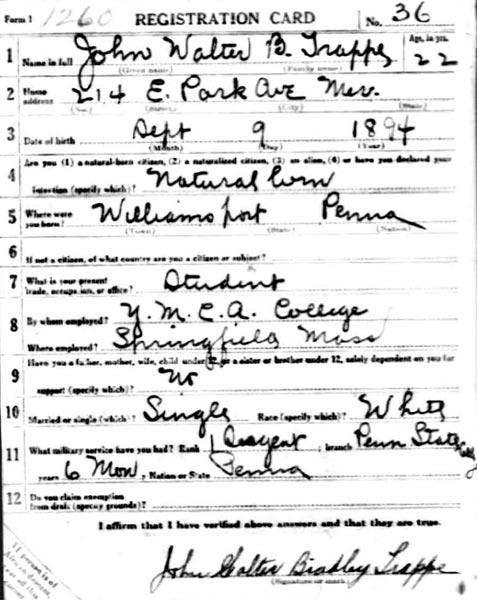 Form 1 1260 REGISTRATION CARD No. 36
1 John Walter B. Trappe Age, in yrs. 22
Name in full (Given name) (Family name)
2 Home address 214 E. Park Ave
(No.) (Street) (City) (State)
3 Date of birth Sept 9 1894
(Month) (Day) (Year)
Are you (1) a natural-born citizen, (2) a naturalized citizen, (3) an alien, (4) or have you declared your
4 intention (specify which)? Natural born
5 Where were you born? Williamsport Penna
(Town) (State) (Nation)
6 If not a citizen, of what country are you a citizen or subject?
7 What is your present trade, occupation, or office? Student
8 By whom employed? Y. M. C. A. College
Where employed? Springfield Mass
Have you a father, mother, wife, child under 12, or a sister or brother under 12, solely dependent on you for
9 support (specify which)? No
10 Married or single (which)? Single Race (specify which)? White
11 What military service have you had? Rank branch Penn State
years 6 Mon; Nation or State Penna
12 Do you claim exemption from draft (specify grounds)?
I affirm that I have verified above answers and that they are true.
John Walter Bradley Trappe
(Signature or mark)
If person is of
African descent,